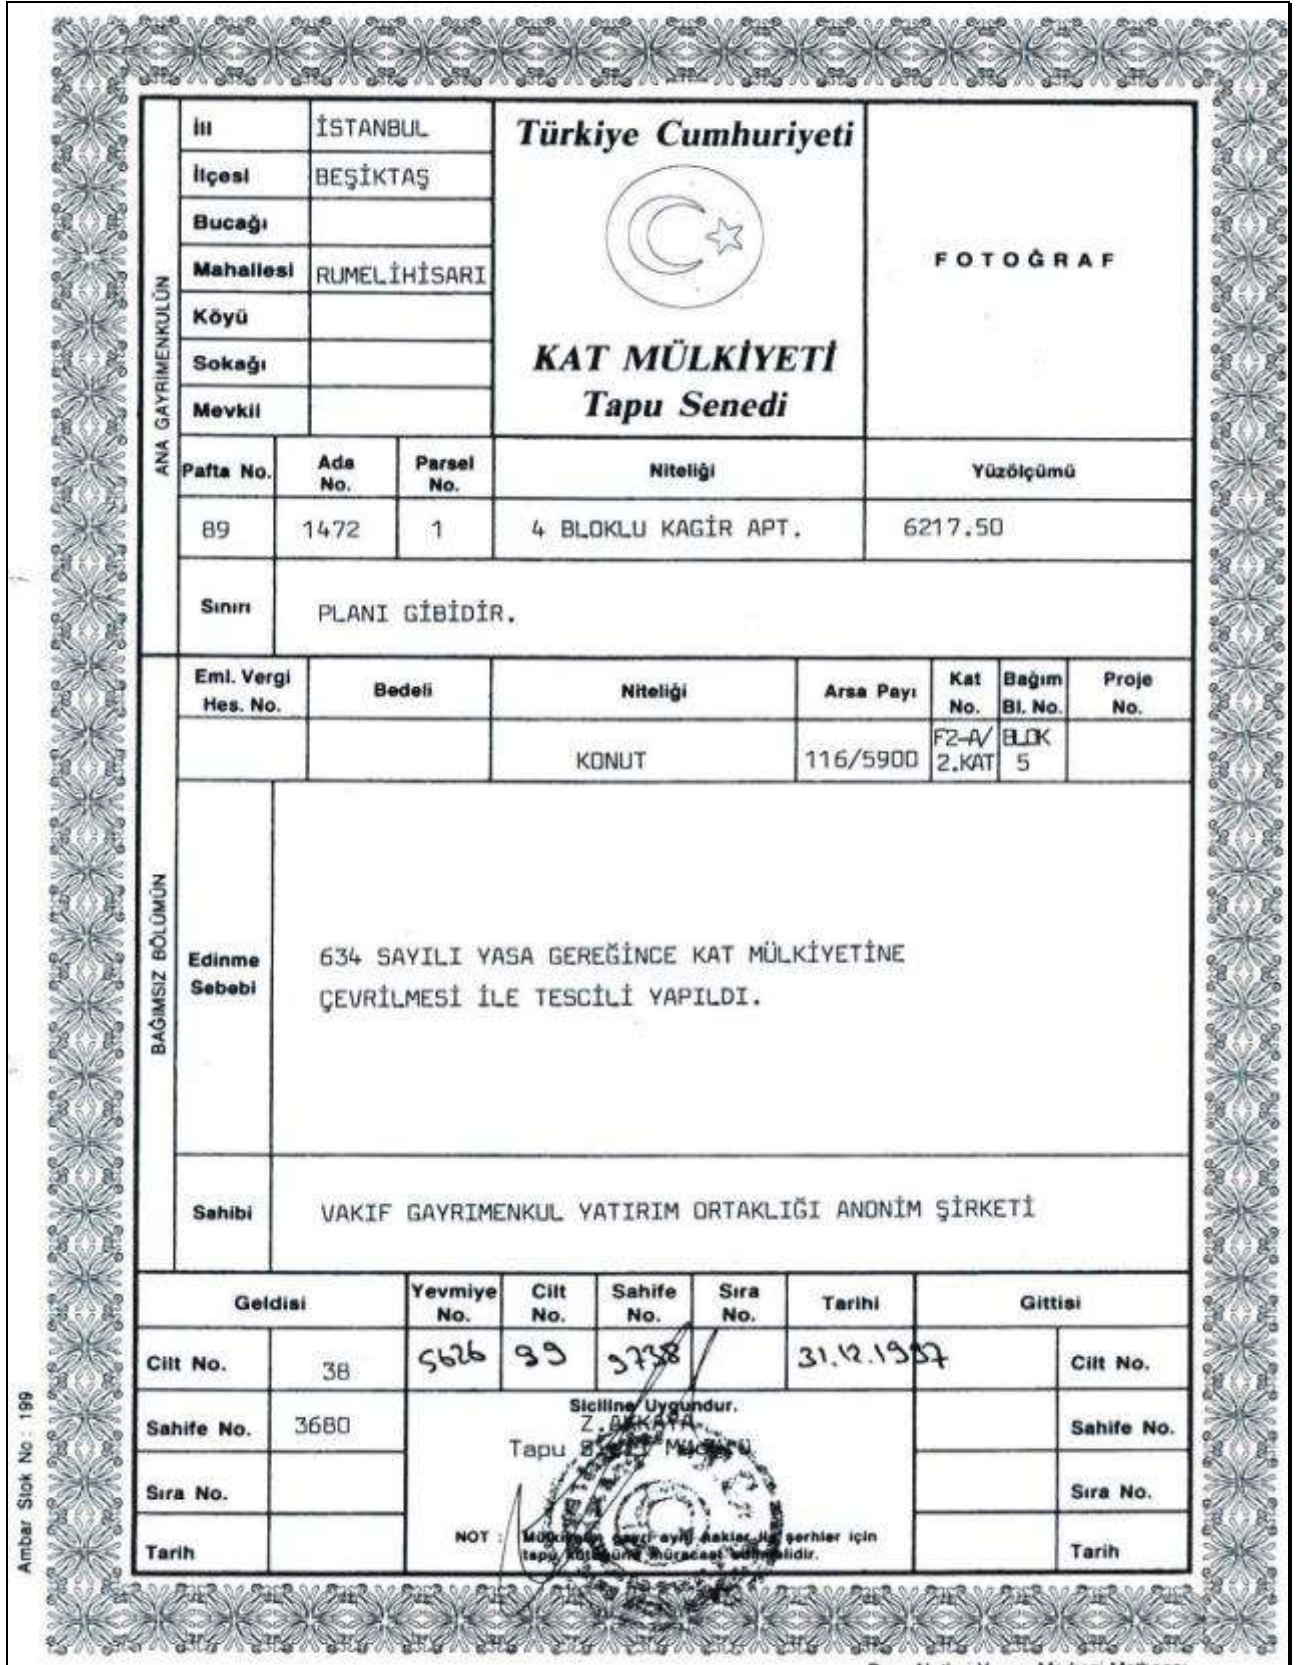 İli İSTANBUL
İlçesi BEŞİKTAŞ
Bucağı
Mahallesi RUMELİHİSARI
Köyü
Sokağı
Mevkii
Türkiye Cumhuriyeti
KAT MÜLKİYETİ
Tapu Senedi
FOTOĞRAF
ANA GAYRİMENKULÜN
Pafta No. Ada No. Parsel No. Niteliği Yüzölçümü
89 1472 1 4 BLOKLU KAGİR APT. 6217.50
Sınırı PLANI GİBİDİR.
BAĞIMSIZ BÖLÜMÜN
Eml. Vergi Hes. No. Bedeli Niteliği Arsa Payı Kat No. Bağım Bl. No. Proje No.
KONUT 116/5900 F2-A/ 2.KAT BLOK 5
Edinme Sebebi
634 SAYILI YASA GEREĞİNCE KAT MÜLKİYETİNE
ÇEVRİLMESİ İLE TESCİLİ YAPILDI.
Sahibi VAKIF GAYRIMENKUL YATIRIM ORTAKLIĞI ANONİM ŞİRKETİ
Geldisi Yevmiye No. Cilt No. Sahife No. Sıra No. Tarihi Gittisi
Cilt No. 38 5626 99 9738 31.12.1997 Cilt No.
Siciline Uygundur.
Sahife No. 3680 Sahife No.
Z.
Tapu
Sıra No. Sıra No.
NOT : Mülkiyetin gayri ayni haklar ile şerhler için
tapu kütüğüne müracaat edilmelidir.
Tarih Tarih
Ambar Stok No : 199